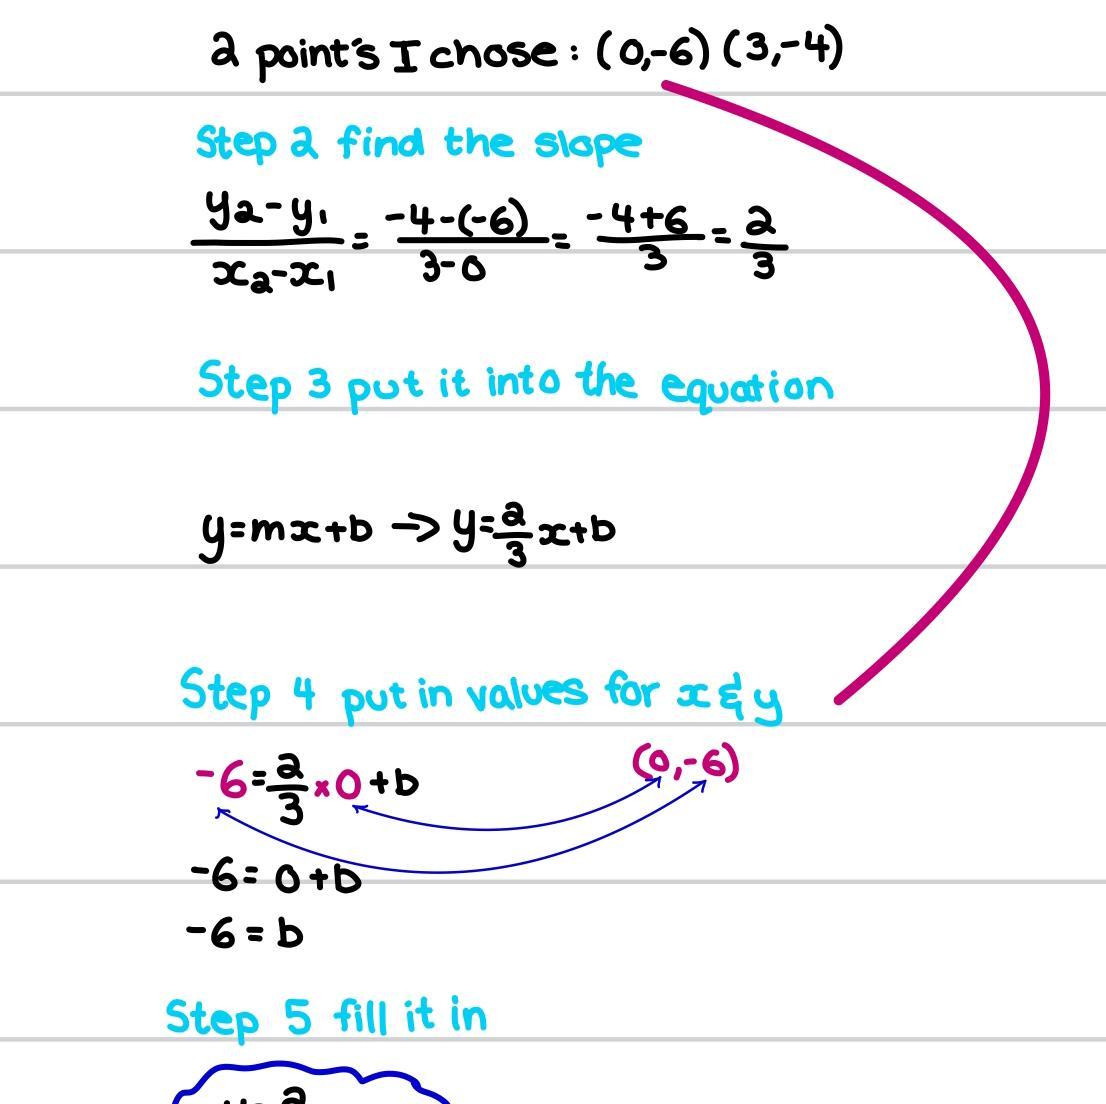 2 point's I chose: (0,-6) (3,-4)
Step 2 find the slope
y₂-y₁/x₂-x₁ = -4-(-6)/3-0 = -4+6/3 = 2/3
Step 3 put it into the equation
y=mx+b → y=2/3x+b
Step 4 put in values for x & y
-6=2/3×0+b (0,-6)
-6=0+b
-6=b
Step 5 fill it in